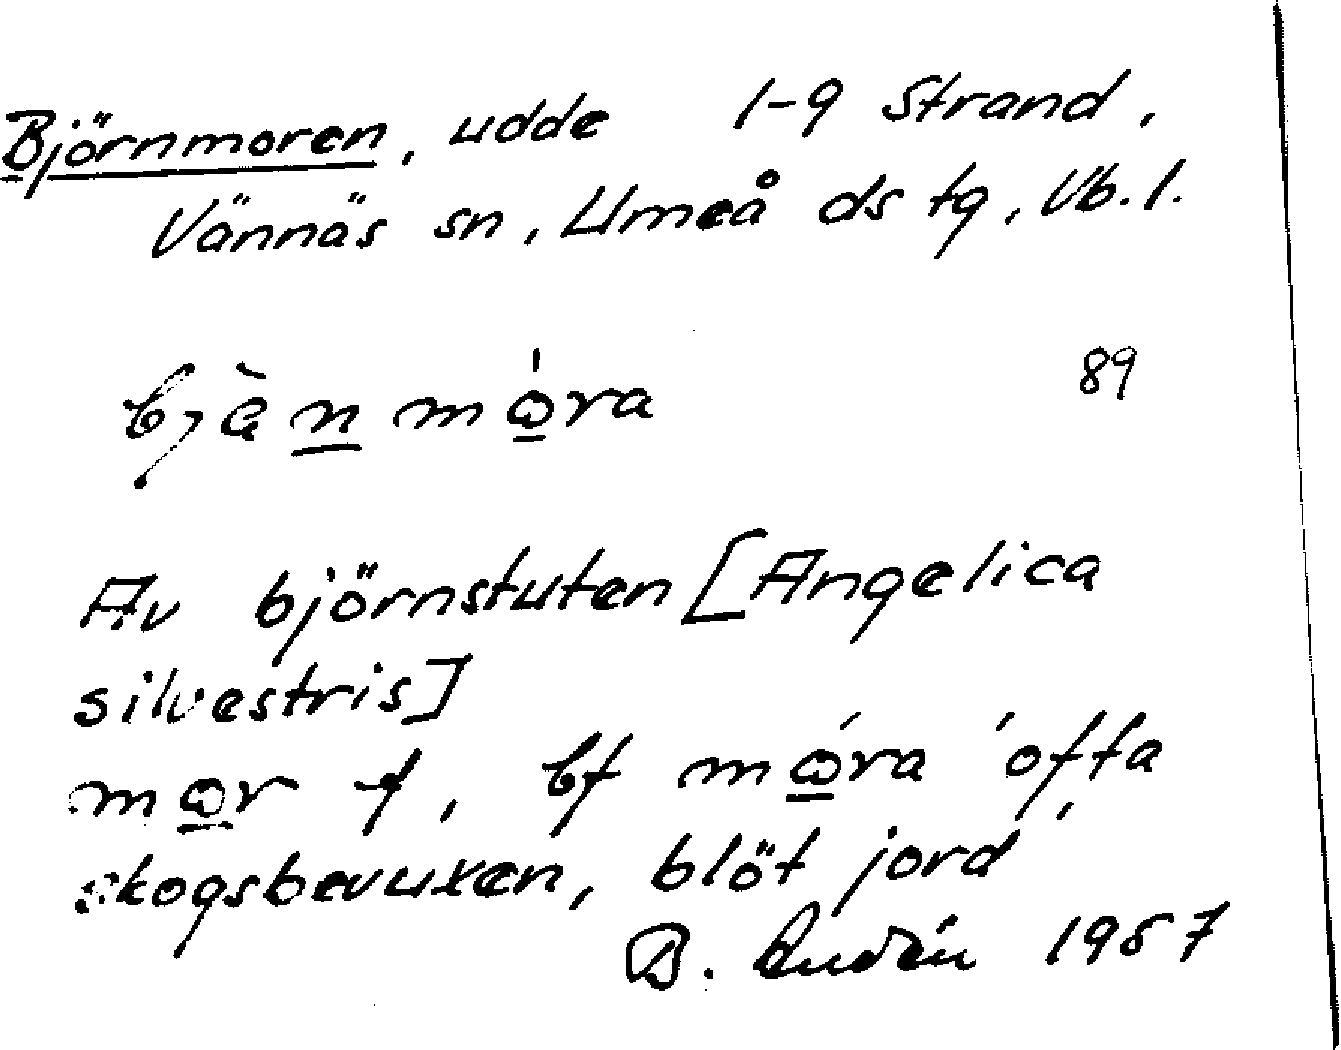 Björnmoren, udde 1-9 Strand,
Vännäs sn, Umeå ds tg, Vb.l.
bjὰn mώ̲ra 89
Av björnstuten [Angelica
silvestris]
mω̲r f, bf mώ̲ra 'ofta
skogsbevuxen, blöt jord'
B. 1957